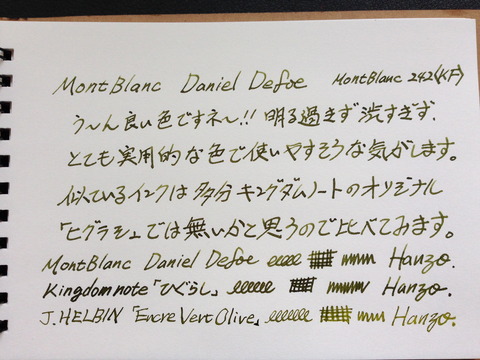 MontBlanc Daniel Defoe MontBlanc 242《KF》
う〜ん良い色ですネ〜!! 明る過ぎず渋すぎず.
とても実用的な色で使いやすそうな気がします。
似ているインクは多分キングダムノートのオリジナル
「ヒグラシ」では無いかと思うので比べてみます。
MontBlanc Daniel Defoe Hanzo.
Kingdomnote「ひぐらし」 Hanzo.
J.HELBIN「Encre Vert Olive」 Hanzo.